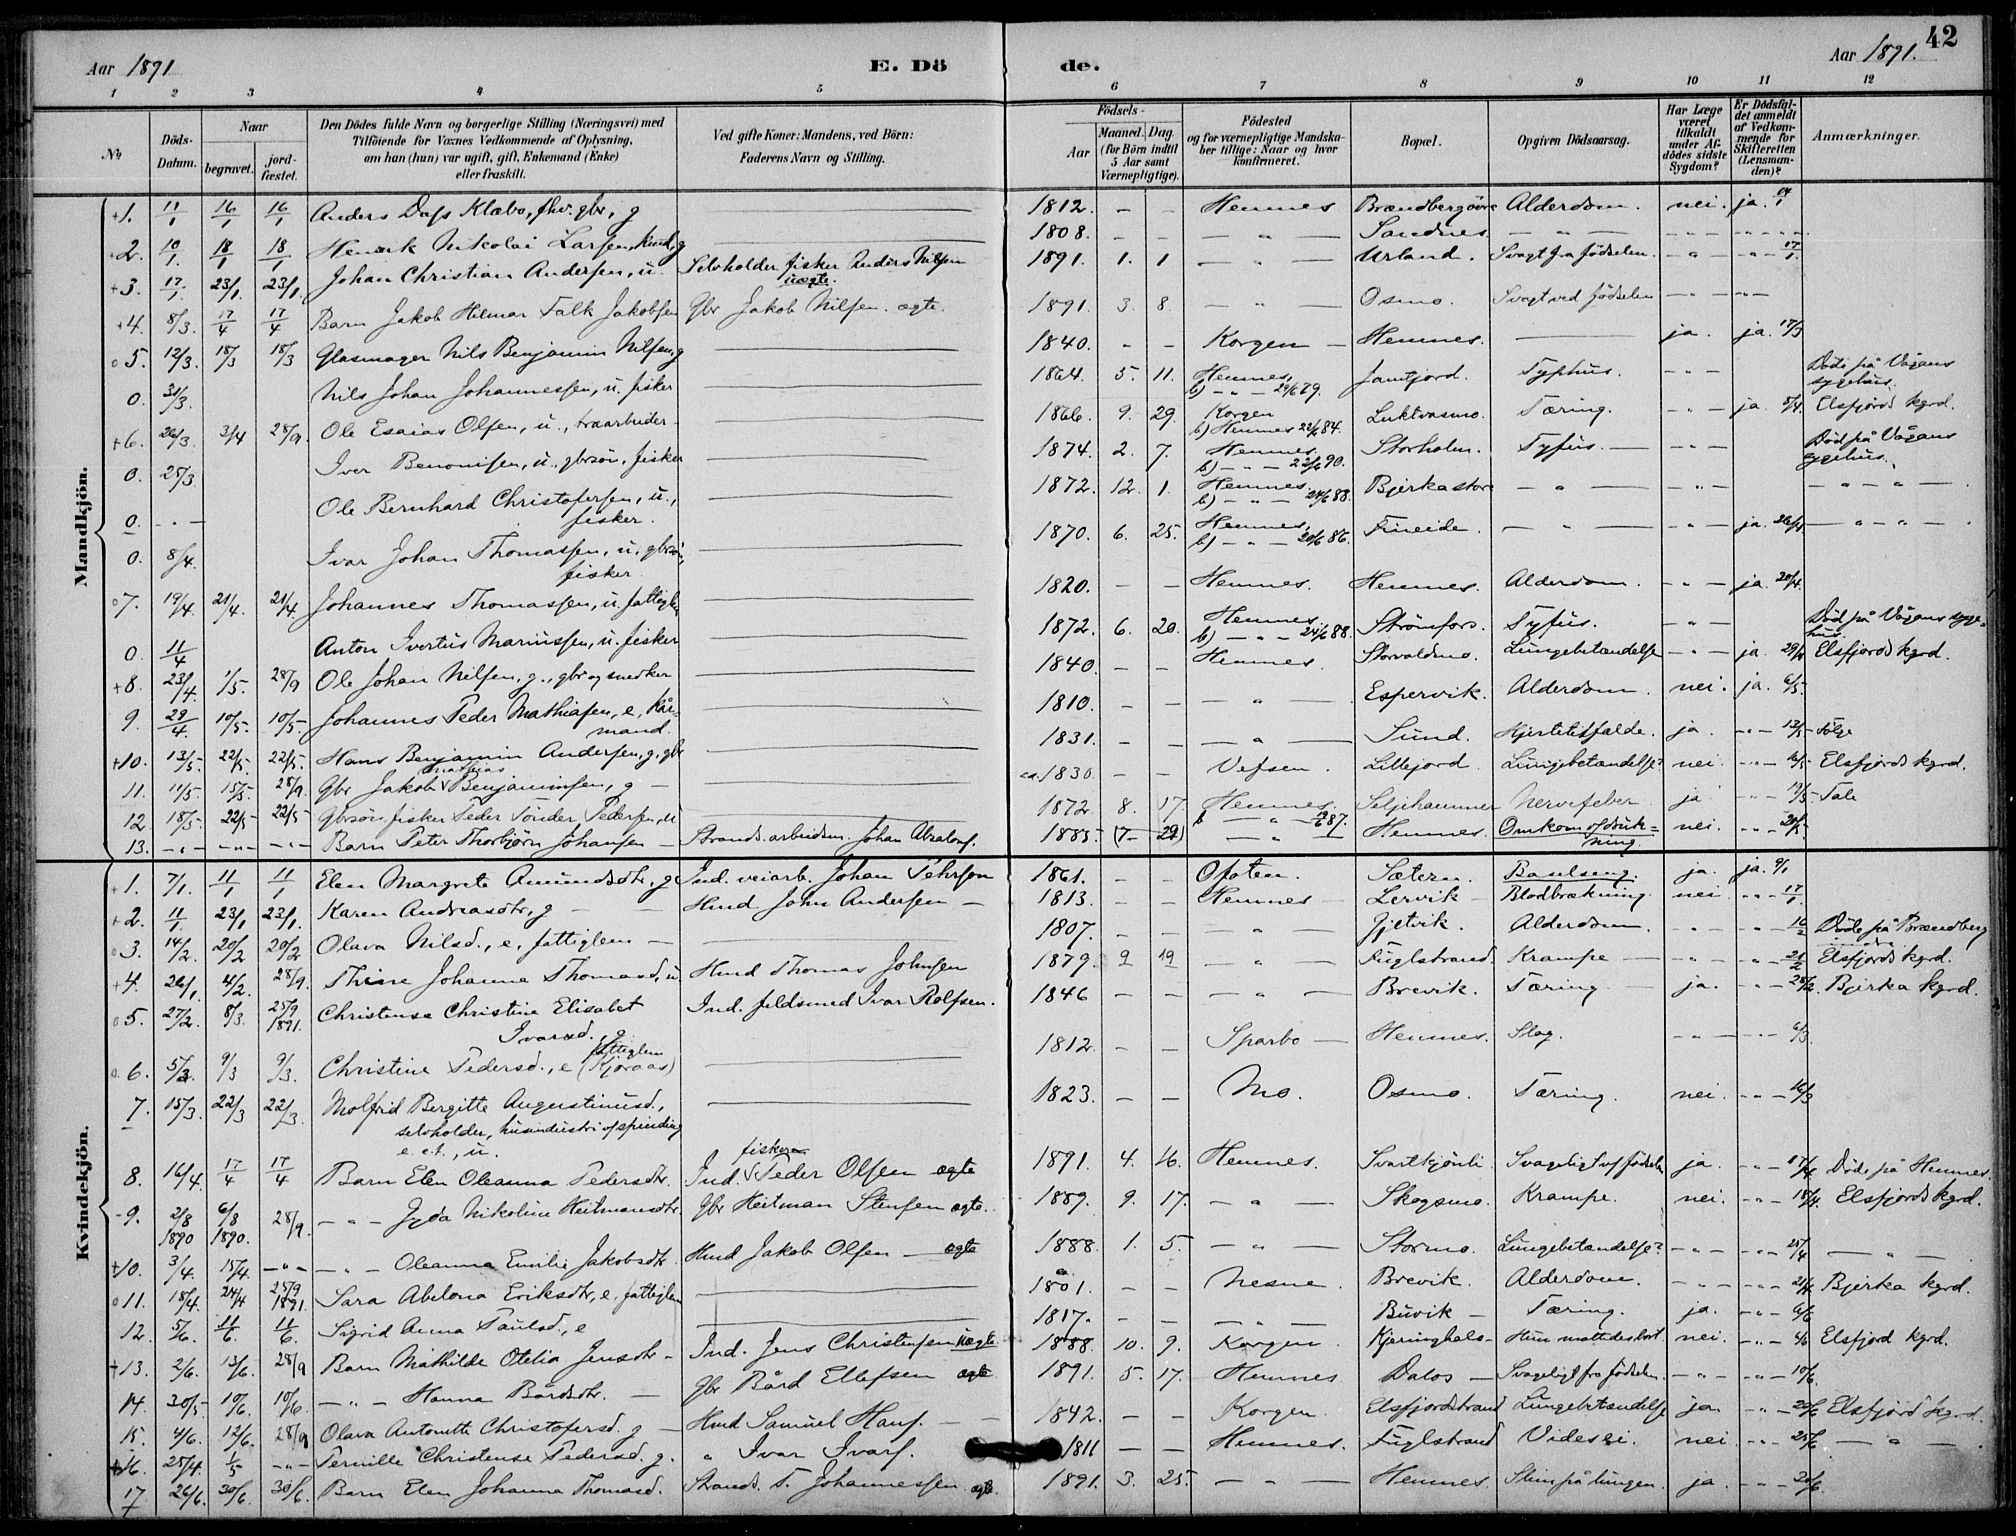 42
Aar 1891
E. Dö
de.
Aar 1891.
1 2 3 4 5 6 7 8 9 10 11 12
No.
Döds-Datum.
Naar
begravet.
jord-fæstet.
Den Dödes fulde Navn og borgerlige Stilling (Næringsvei) med
Tilföiende for Voxnes Vedkommende af Oplysning,
om han (hun) var ugift, gift, Enkemand (Enke)
eller fraskilt.
Ved gifte Koner: Mandens, ved Börn:
Faderens Navn og Stilling.
Födsels-
Aar
Maaned. Dag.
(for Börn indtil
5 Aar samt
Værnepligtige).
Födested
og for værnepligtige Mandska-
ber tillige: Naar og hvor
konfirmeret.
Bopæl.
Opgiven Dödsaarsag.
Har Læge
været
tilkaldt
under Af-
dödes sidste
Sygdom?
Er Dödsfal-
det anmeldt
af Vedkom-
mende for
Skifteretten
(Lensman-
den)?
Anmærkninger.
Mandkjön.
+1. 11/1 16/1 16/1 Anders Klæbo, gbr, g — 1812. — — Hemnes Brændbergøvre Alderdom. nei. ja. 14/1
+2. 10/1 18/1 18/1 Henrik Nikolai Larsen, g — 1808. — — — " — Sandnes — " —
+3. 17/1 23/1. 23/1. Johan Christian Andersen, u. Selvholder fisker Anders Nilsen uægte. 1891. 1. 1 — " — Urland. Svagt fra fødselen. — " — — " — 17/1
+4. 8/3. 17/4 17/4 Barn Jakob Hilmar Falk Jakobsen Gbr Jakob Nilsen. ægte. 1891. 3 8. — " — Osmo. Svagt ved fødselen — " — — " —
o5. 12/3. 18/3 18/3 Glasmager Nils Benjamin Nilsen, g — 1840. — — Korgen — Hemnes. — ja. ja. 17/3
0. 31/3. Nils Johan Johannessen, u. fisker — 1864. 5. 11. Hemnes, b) — " — 29/6 79. Jamtjord. Typhus. — " — Døde på Vågans sygehus.
+6. 26/3. 3/4 28/9. Ole Esaias Olsen, u., træarbeider — 1866. 9. 29. Korgen b) Hemnes 22/6 84. Luktvasmo. Tæring. — " — ja. 5/4. Elsfjords kgrd.
0. 25/3 Iver Benonisen, u., gbrsøn, fisker — 1874. 2. 7. Hemnes. b) — " — 22/6 90. Storholm. Tyfus. — — " — Død på Vågans sygehus.
0. — " — Ole Bernhard Christofersen, u., fisker. — 1872. 12. 1. Hemnes. b) — " — 24/6 88. Bjerkastore — " — — " — — " — " —
0. 8/4. Ivar Johan Thomassen, u., gbrsøn, fisker — 1870. 6. 25. Hemnes, b) — " — 20/6 86. Fineide. — " — — " — ja. 26/4 — " — " —
o7. 19/4. 21/4. 21/4. Johannes Thomassen, u. fattiglem — 1820. — — Hemnes. Hemnes. Alderdom. — " — ja. 20/4.
0. 11/4 Anton Ivertus Mariussen, u. fisker — 1872. 6. 20. Hemnes b) — " — 24/6 88. Strømfors. Tyfus. — " — Død på Vågans sygehus.
+8. 23/4. 1/5. 28/9 Ole Johan Nilsen, g., gbr og smedker — 1840. — — Hemnes. Storvoldmo. Lungebetændelse — " — ja. 29/4 Elsfjords kgrd.
9. 29/4. 10/5. 10/5. Johannes Peder Mathiasen, e, Kårmand. — 1810. — — — " — Espervik. Alderdom. nei. ja. 6/5.
+10. 13/5. 22/5. 22/5. Hans Benjamin Andersen, g., gbr — 1831. — — — " — Sund. Hjertetilfælde. ja. — " — 13/5 Tale
11. 11/5. 15/5. 28/9. Gbr Jakob Mathias Benjaminsen, g — ca. 1830. — — Vefsen. Lillejord. Lungebetændelse? nei. — " — Elsfjords kgrd.
12 18/5. 22/5 22/5 Gbrsøn fisker Peder Tønder Pedersen, u — 1872 8. 17. Hemnes. b — " — 687. Seljehammer Nervefeber ja — " — 19/5 Tale
13. — " — — " — — " — Barn Peter Thorbjørn Johansen — Strands. arbeidsm. Johan Absalons. 1885. (7- 29) — " — Hemnes. Omkom af drukning. nei. — " — 20/5
Kvindekjön.
+1. 7/1. 11/1 11/1 Elen Margrete Amundsdtr, g Ind. veiarb. Johan Pehrson 1861. — — Ofoten. Sætern. Barselseng. ja. ja. 9/1
+2. 11/1. 23/1 23/1. Karen Andreasdtr, g — Hmd. John Andersen — 1813. — — Hemnes — Lervik — Blodbrækning. nei. — " — 17/1
o3. 14/2. 20/2 20/2 Olava Nilsd., e, fattiglem — 1807. — — — " — Gjeltvik. Alderdom. — " — — " — 16/2 Døde på Brændberg nedre
+4. 26/1. 4/2. 28/9. Thine Johanne Thomasd., u Hmd Thomas Johnsen 1879. 9 19 — " — Fuglstrand. Krampe — — " — — " — 21/2 Elsfjords kgrd.
o5. 27/2. 8/3. 25/9 1891. Christense Christine Elisabet Ivarsd., g. Ind. feldsmed Ivar Rolfsen. 1846 — — — " — Brevik. Tæring — ja. — " — 28/2. Bjerka kgrd.
o6. 5/3. 9/3 9/3. Christine Pedersd., e fattiglem (Kjøraas) — 1812. — — Sparbo — Hemnes. Slag. — " — — " — 6/3
7. 15/3. 22/3 22/3. Molfrid Bergitte Augustinusd., selvholder, husindustri af spinding e. ct., u. — 1823. — — Mo. Osmo. Tæring. nei. — " — 16/3
8. 16/4. 17/4 17/4 Barn Elen Oleanna Pedersdtr. Ind. fisker Peder Olsen ægte 1891. 4. 16. Hemnes. Svartkjønli Svageligt af fødselen ja. — " — 17/4 Døde på Hemnes.
-9. 2/8 1890 6/8 1890. 28/9. — " — Jyda Nikoline Heitmansdtr Gbr Heitman Stensen ægte. 1889. 9. 17. — " — Skogsmo. Krampe. nei. — " — 18/4. Elsfjords kgrd.
+10. 3/4. 15/4. — " — — " — Oleanna Emilie Jakobsdtr. Hmd Jakob Olsen — ægte 1888. 1. 5. — " — Stormo. Lungebetændelse? — " — — " — 25/4 — " —
o11. 18/4. 24/4 25/9 1891. Sara Abelona Eriksdtr, e. fattiglem — 1801. — — Nesne. Brevik. Alderdom. — " — — " — 21/4 Bjerka kgrd.
12. 5/6. 11/6. 11/6. Sigrid Anna Paulsd., e — 1817. — — — " — Buvik — Tæring. ja. — " — 6/6
+13. 2/6. 13/6. 28/9 Barn Mathilde Otelia Jensdtr — Ind. Jens Christensen uægte 1888. 10. 9. Korgen. Kjeringhals — Hun mattedes bort. nei. — " — 4/6 Elsfjord kgrd.
14. 30/5. 10/6. 10/6. — " — Hanna Bårdsdtr. — Gbr Bård Ellefsen ægte 1891. 5. 17. Hemnes Dalos — Svageligt fra fødselen. — " — — " — 10/6.
15. 4/6. 12/6. 28/9 Olava Antonette Christofersd. g — Hmd Samuel Hans. — 1842. — — Korgen. Elsfjordstrand Lungebetændelse ja. — " — 20/6 Elsfjord kgrd.
+16. 25/4. 1/5 — " — Pernille Christense Pedersd. g. " Ivar Ivars. 1811 — — Hemnes. Fuglstrand Videsei. nei. — " — 25/6 — " —
17 26/6. 30/6. 30/6. Barn Elen Johanna Thomasd. Strands. T. Johannessen ægte. 1891. 3. 25. — " — Hemnes Slim på lungen. ja — " — 20/6